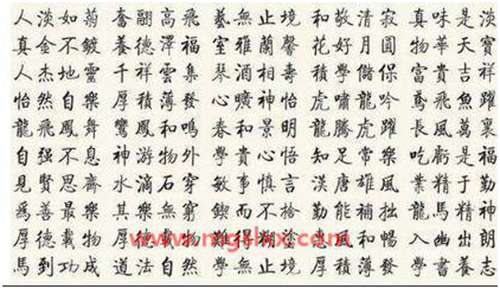 人淡如菊奮翮高飛藝無止境和敬清寂真味是淡
真金不鍍養德澤福室雅蘭馨花好月圓物華天寶
人杰地靈千祥雲集琴酒相壽積學儲富貴吉祥
怡然自樂厚積薄發曠神怡虎嘯龍吟鳶飛魚躍
龍飛鳳舞鸞鳳和鳴春和景明龍騰虎躍長風萬裏
自强不息神游物外和貴心悟知足常樂吃虧是福
見賢思齊水滴石穿敏事慎言漢唐雄風業精于勤
爲善最樂其樂無窮鍥而不捨勤能補拙龍馬精神
厚德載物厚得風和暢入幽出朗
馬到功成道法自然學無止境厚積薄發學書養志